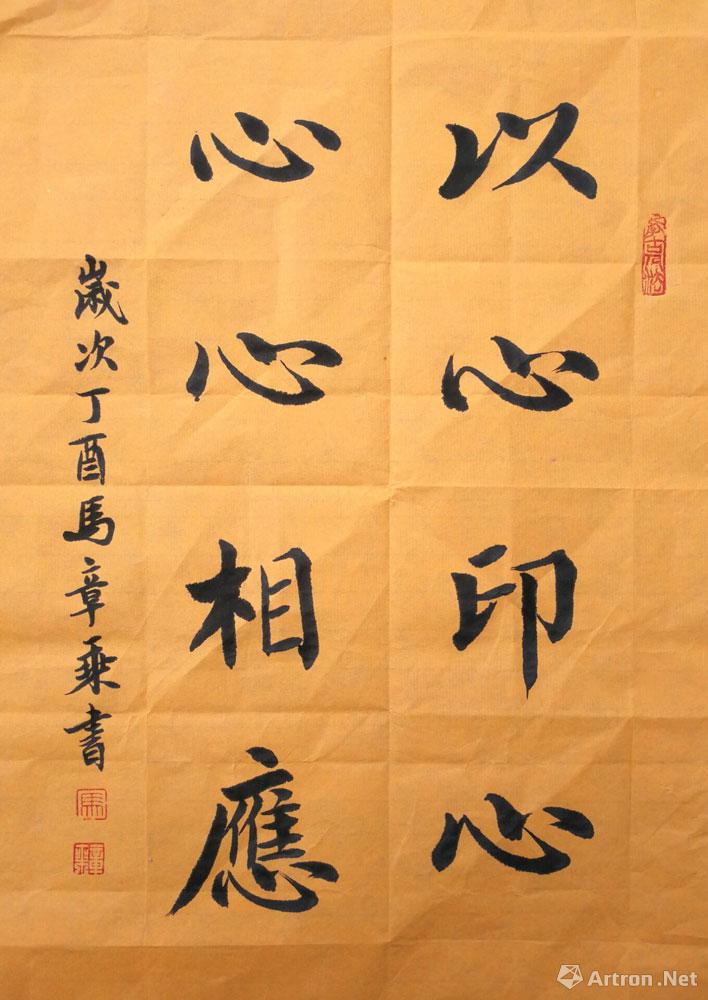 以心印心
心心相應
歲次丁酉馬章乘書
Artron.Net